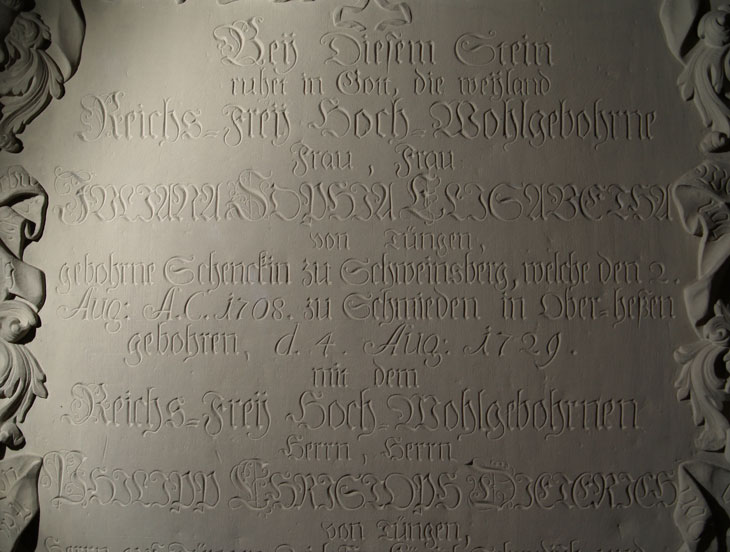 Beÿ Diesem Stein
ruhet in Gott, die weÿland
Reichs=Freÿ Hoch=Wohlgebohrne
Frau, Frau
JULIANA SOPHIA ELISABETHA
von Tüngen,
gebohrne Schenckin zu Schweinsberg, welche den 2.
Aug: A.C. 1708. zu Schmieden in Ober=hessen
gebohren, d. 4. Aug: 1729.
mit dem
Reichs=Freÿ Hoch=Wohlgebohrnen
Herrn, Herrn
PHILIPP CHRISTOPH DIETERICH
von Tüngen,